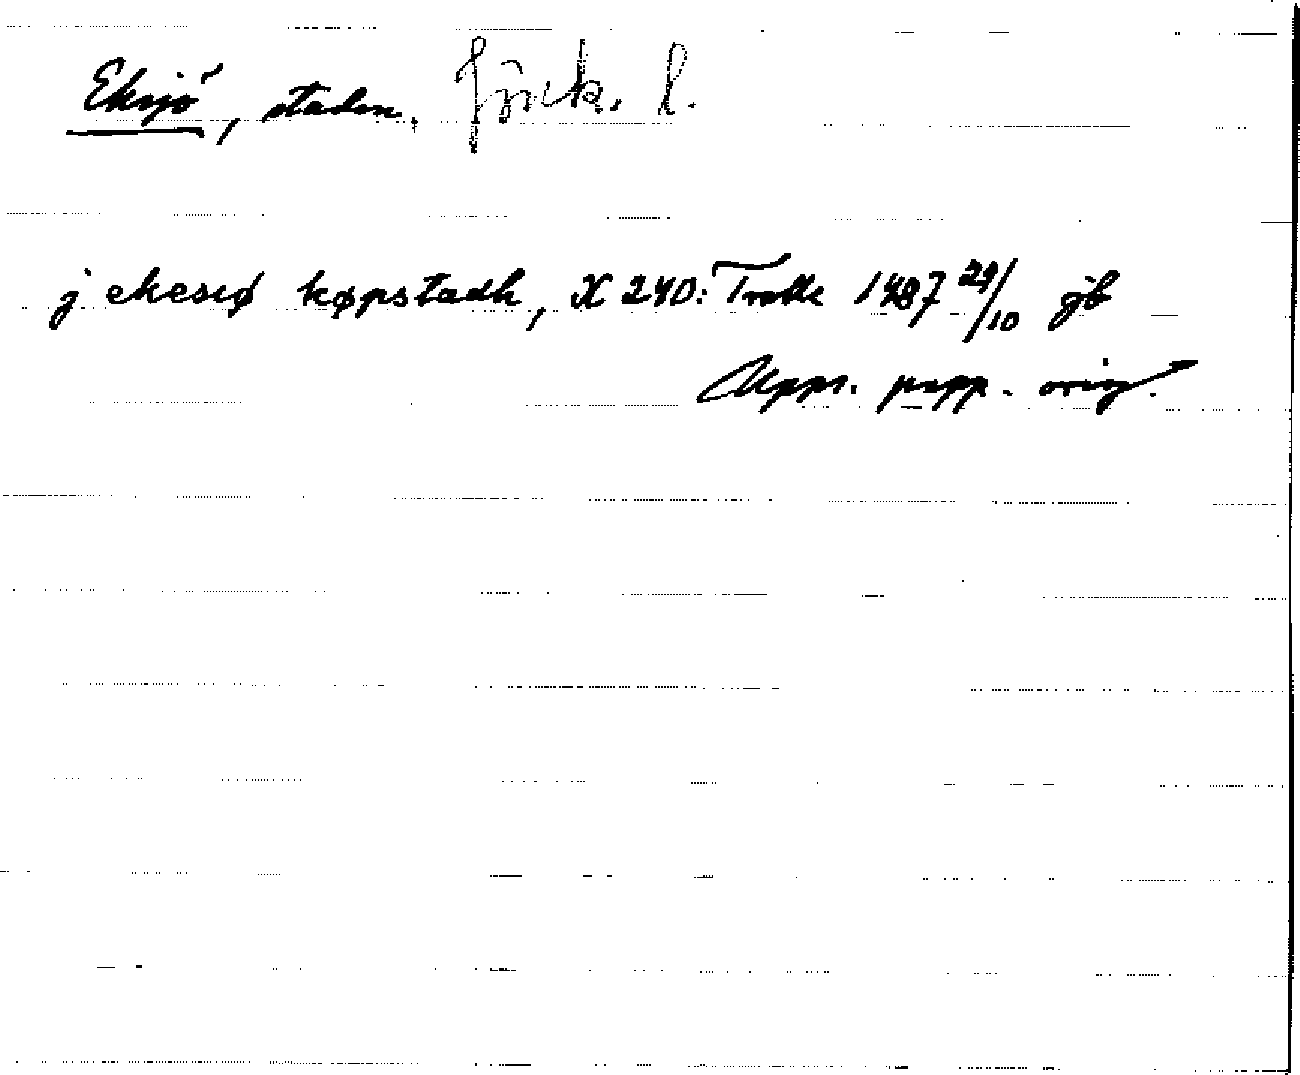 Eksjö, staden. Jönk. l.
j ekesiø køpstadh, X 240: Trolle 1487 29/10 jb
Upps. papp. orig.